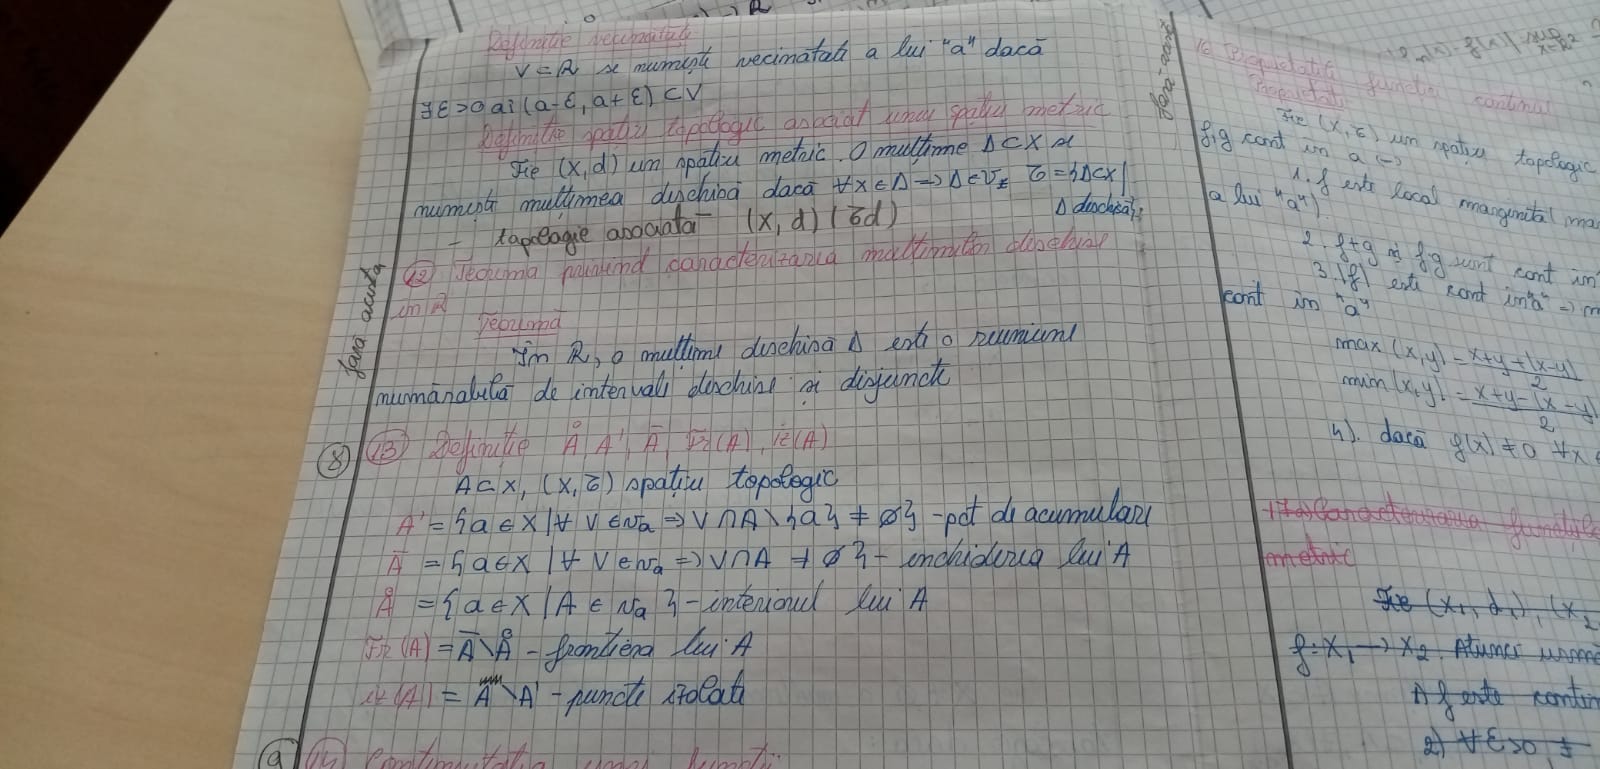 Definitie vecinatate
V=R se numeste vecinatate a lui "a" dacă
∃ε>0 aî (a-ε, a+ε) ⊂V
Definitie spațiu topologic asociat unui spațiu metric
Fie (X,d) un spațiu metric. O mulțime Δ⊂X se
numește mulțimea deschisă dacă ∀x∈Δ=>Δ∈Vx  τ={Δ⊂X|
Δ deschisă};
- topologie asociată - (X,d) (τd)
fără acesta
(12) Teorema privind caracterizarea mulțimilor deschise
in R
Teoremă
În R, o mulțime deschisă Δ este o reuniune
numărabilă de intervale deschise și disjuncte
(8) (13) Definiție Å A', Ā, Fr(A), iz(A)
A⊂X, (X,τ) spațiu topologic
A' = {a∈X|∀ V∈Va => V∩A\{a} ≠ ∅} - pct de acumulare
Ā = {a∈X|∀ V∈Va => V∩A ≠ ∅} - inchiderea lui A
Å = {a∈X|A∈Va} - interiorul lui A
Fr(A) = Ā\Å - frontiera lui A
iz(A) = A\A' - puncte izolate
(9) (14)
fără
16 Proprietati functii continue
Proprietati
Fie (X,τ) un spațiu topologic
f,g cont in a =>
1. f este local marginita
a lui "a")
2. f+g și fg sunt cont in
3. |f| este cont in "a" =>
cont in "a"
max (x,y) = x+y+|x-y|/2
min (x,y) = x+y-|x-y|/2
4). dacă g(x) ≠0 ∀x
17a) Caracterizarea
metric
Fie (X1, d1), (X2
f: X1 → X2. Atunci
1) f este contin
2) ∀ε>0 ∃